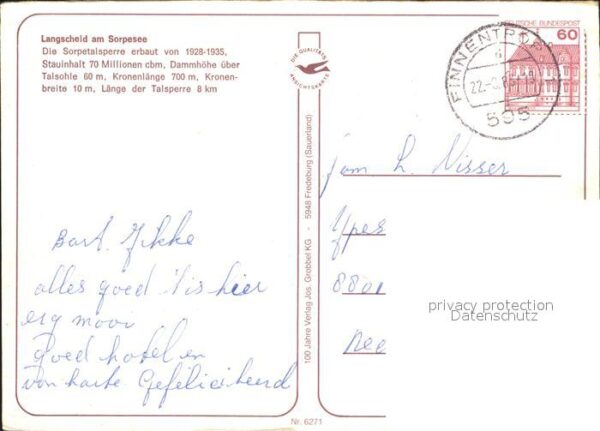 Langscheid am Sorpesee
Die Sorpetalsperre erbaut von 1928-1935,
Stauinhalt 70 Millionen cbm, Dammhöhe über
Talsohle 60 m, Kronenlänge 700 m, Kronen-
breite 10 m, Länge der Talsperre 8 km
DIE QUALITÄTS
ANSICHTSKARTE
DEUTSCHE BUNDESPOST
60
FINNENTROP
22.-
595
fam L. Visser
Ypes
880
Nee
privacy protection
Datenschutz
Bart. Jikke
alles goed 't is hier
erg mooi
goed hotel en
von harte Gefeliciteerd
100 Jahre Verlag Jos. Grobbel KG - 5948 Fredeburg (Sauerland)
Nr. 6271